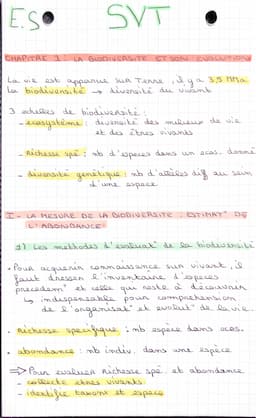 E.S SVT
CHAPITRE 1 : LA BIODIVERSITE ET SON EVOLUTION
La vie est apparue sur Terre, il y a 3,5 MMa
La biodiversité → diversité du vivant
3 échelles de biodiversité :
- écosystème : diversité des milieux de vie
et des êtres vivants
- richesse spé : nb d'espèces dans un écos. donné
- diversité génétique : nb d'allèles diff au sein
d'une espèce
I - LA MESURE DE LA BIODIVERSITE, ESTIMAT° DE
L'ABONDANCE
1) Les méthodes d'évaluat° de la biodiversité
• Pour acquérir connaissance sur vivant, il
faut dresser l'inventaire d'espèces
précédent et celle qui reste à découvrir
↳ indispensable pour compréhension
de l'organisat° et évolut° de la vie.
• Richesse spécifique : nb espèce dans écos.
• abondance : nb indiv. dans une espèce
⇒ Pour évaluer richesse spé et abondance
- collecte êtres vivants
- identifie taxons et espèce